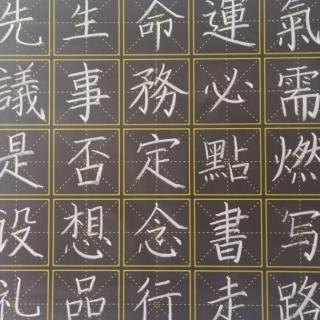 先生命運氣
議事務必需
是否定點燃
设想念書写
礼品行走路